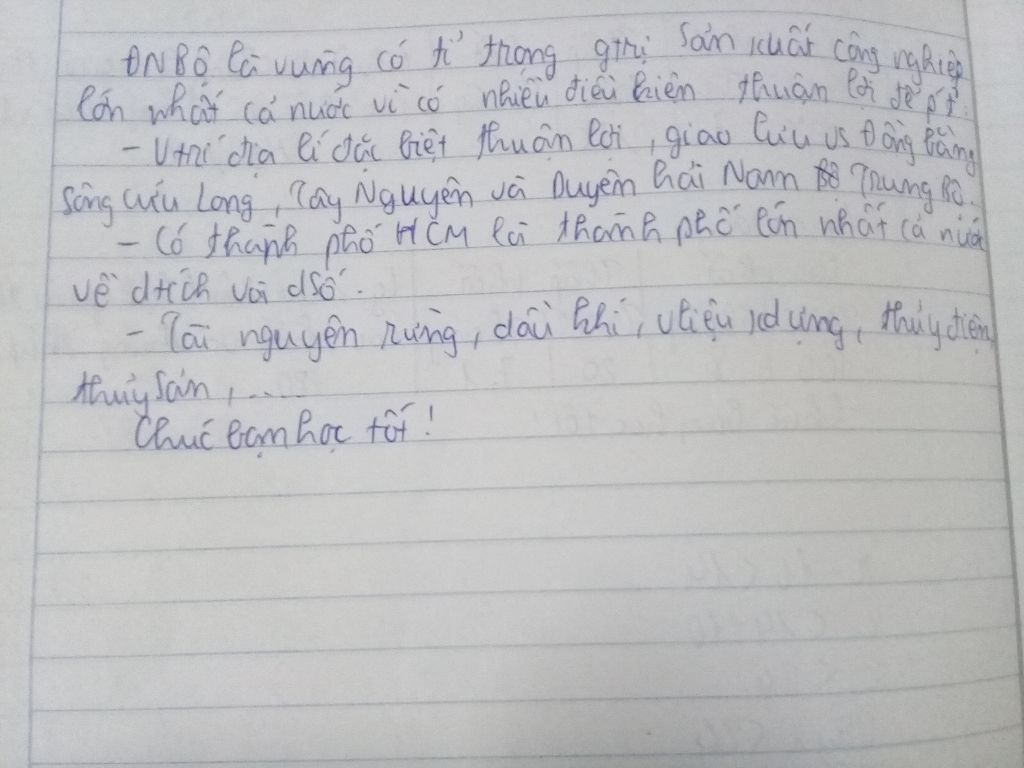 ĐNBộ là vùng có tỉ trọng gtrị sản xuất công nghiệp
lớn nhất cả nước vì có nhiều điều kiện thuận lợi để pt.
- Vtrí địa lí đặc biệt thuận lợi, giao lưu vs Đồng bằng
sông Cửu Long, Tây Nguyên và Duyên hải Nam Trung Bộ.
- Có thành phố HCM là thành phố lớn nhất cả nước
về dtích và dsố.
- Tài nguyên rừng, dầu khí, vliệu xdựng, thủy điện,
thủy sản, ....
Chúc bạn học tốt!